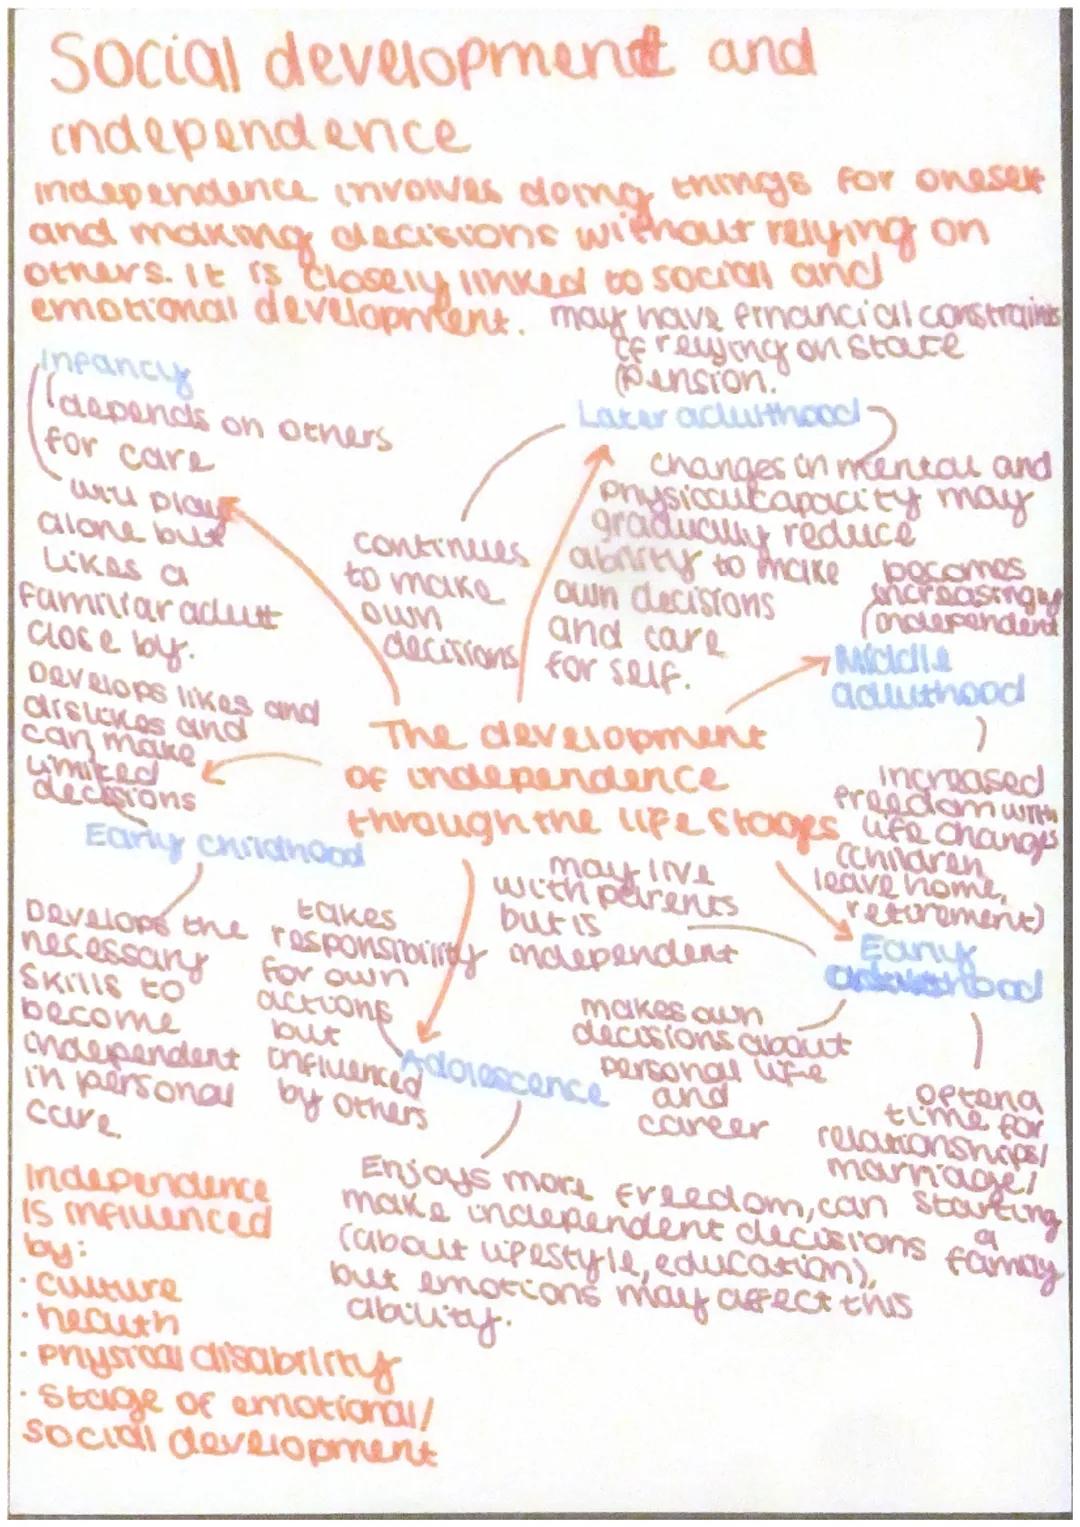 Social development and
independence
independence involves doing things for oneself
and making decisions without relying on
others. It is closely linked to social and
emotional development.
may have financial constraints
if relying on state
pension.
Later adulthood
changes in mental and
physical capacity may
gradually reduce
ability to make
own decisions
and care
for self.
continues
to make
own
decisions
Infancy
depends on others
for care
will play
alone but
likes a
familiar adult
close by.
Develops likes and
dislikes and
can make
limited
decisions
Early childhood
Develops the
necessary
skills to
become
independent
in personal
care.
becomes
increasingly
independent
Middle
adulthood
increased
freedom with
life changes
(children
leave home,
retirement)
The development
of independence
through the life stages
may live
with parents
but is
independent
Early
adulthood
makes own
decisions about
personal life
and
career
often a
time for
relationships/
marriage/
starting
a
family
takes
responsibility
for own
actions
but
influenced
by others
Adolescence
Enjoys more freedom, can
make independent decisions
(about lifestyle, education),
but emotions may affect this
ability.
Independence
is influenced
by:
· culture
· health
· physical disability
· stage of emotional/
social development